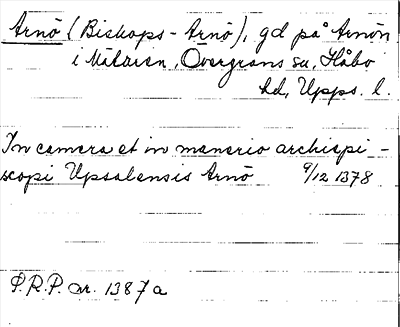 Arnö (Biskops-Arnö), gd på Arnön
i Mälaren, Övergrans sn, Håbo
hd, Upps. l.
In camera et in manerio archiepi-
scopi Upsalensis Arnö 9/12 1378
P.R.P. nr. 1387a